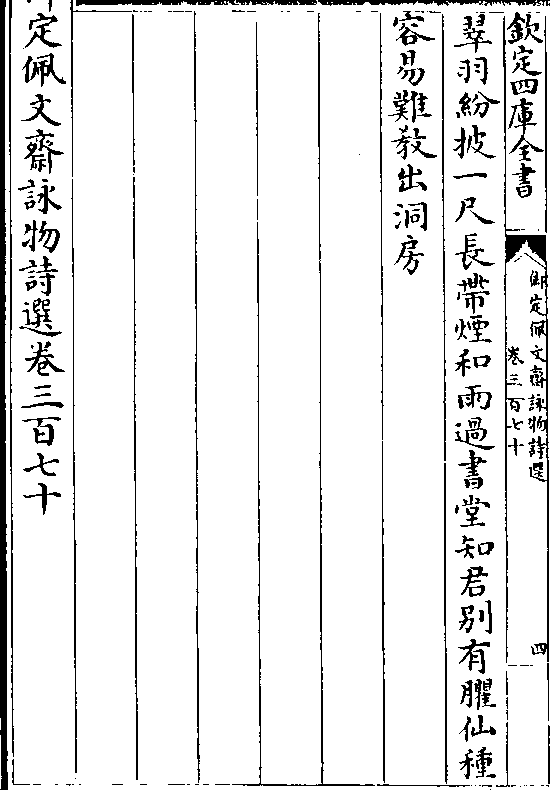 欽定四庫全書
御定佩文齋詠物詩選
卷三百七十
四
翠羽紛披一尺長帶煙和雨過書堂知君别有臞仙種
容易難教出洞房
御定佩文齋詠物詩選卷三百七十